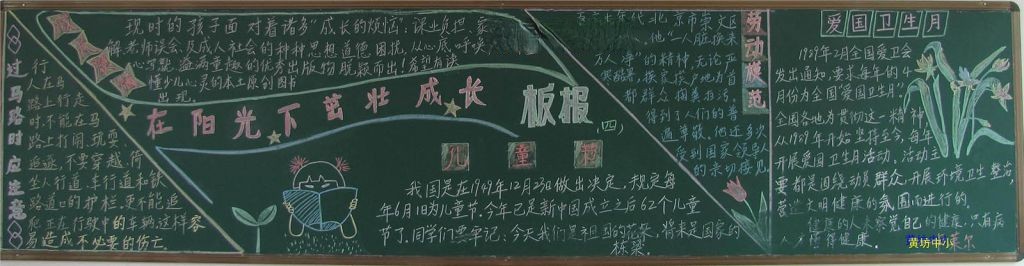 过马路时应注意
行
人在马
路上行走
时不能在马
路上打闹、现耍
追逐，不要穿越
坐人行道、车行道和铁
路道口的护栏，更不能追
在行驶中的车辆这样容
易造成不必要的伤亡。
现时的孩子面对着诸多“成长的烦恼”：课业负担、家
解老师误会、及成人社会的种种思想道德困扰，从心底呼唤
心灵、溢满童趣的优秀出版物脱颖而出！
懂少儿心灵的本土原创图书
出现。
在阳光下茁壮成长
板报
(四)
儿童节
我国是在1949年12月23日做出决定，规定每
年6月1日为儿童节，今年已是新中国成立之后62个儿童
节了，同学们要牢记，今天我们是祖国的花朵，将来是国家的
栋梁。
劳动模范
年代北京市崇文区
他“一人脏换来
万人净”的精神无论严
寒酷暑，挨家挨户地为首
都群众掏粪扫污，
得到了人们的普
遍尊敬。他还多次
受到国家领导人
的亲切接见
爱国卫生月
1989年2月全国爱卫会
发出通知，要求每年的4
月份为全国“爱国卫生月”
全国各地为贯彻这一精神
从1989年开始坚持至今，每年
开展爱国卫生月活动，活动主
要都是围绕动员群众、开展环境卫生整治，
营造文明健康的氛围而进行的。
健康的人未察觉自己的健康，只有病
人懂得健康。
莱尔
黄坊中小